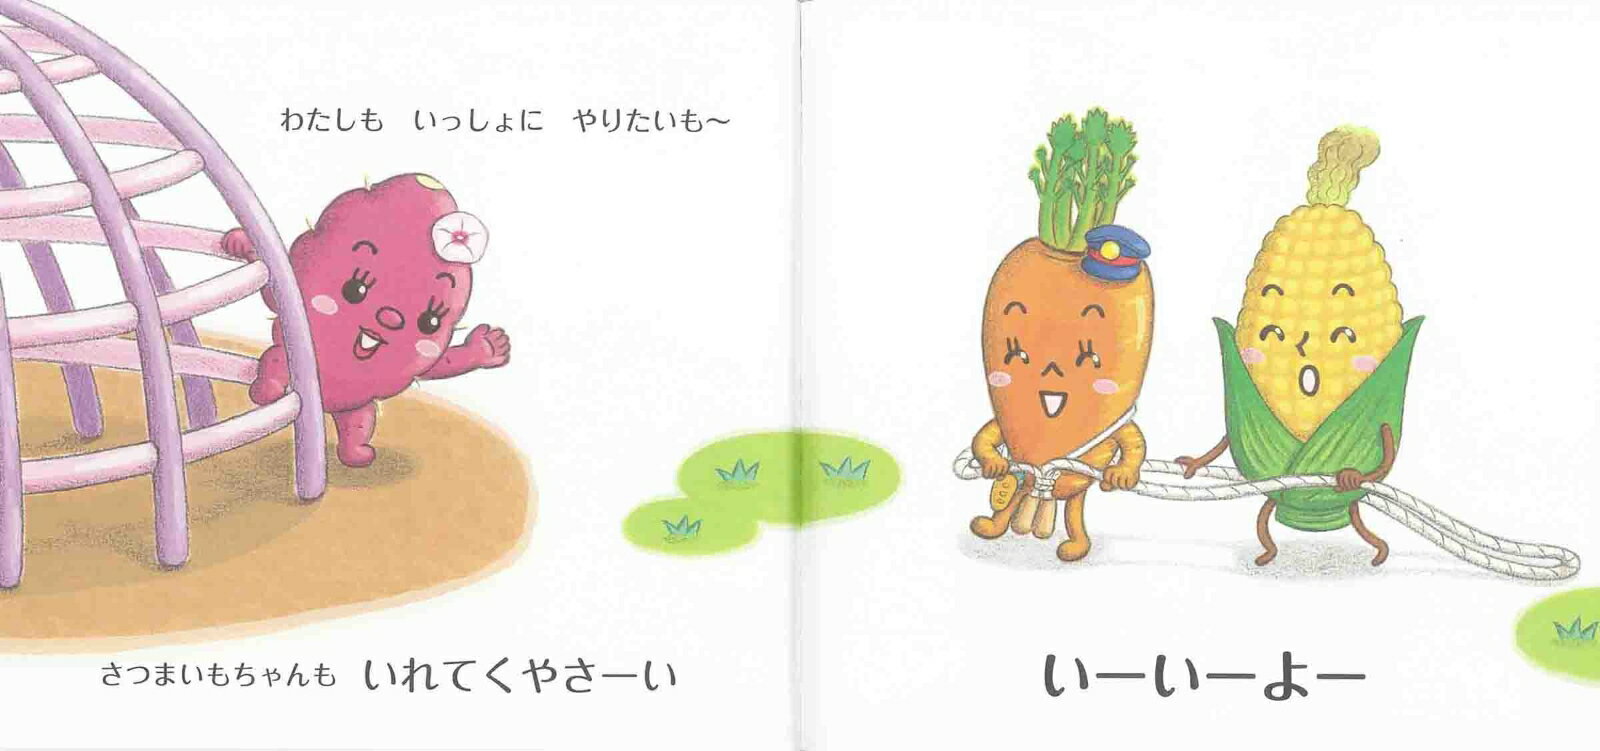 わたしも　いっしょに　やりたいも〜
さつまいもちゃんも　いれてくやさーい
いーいーよー